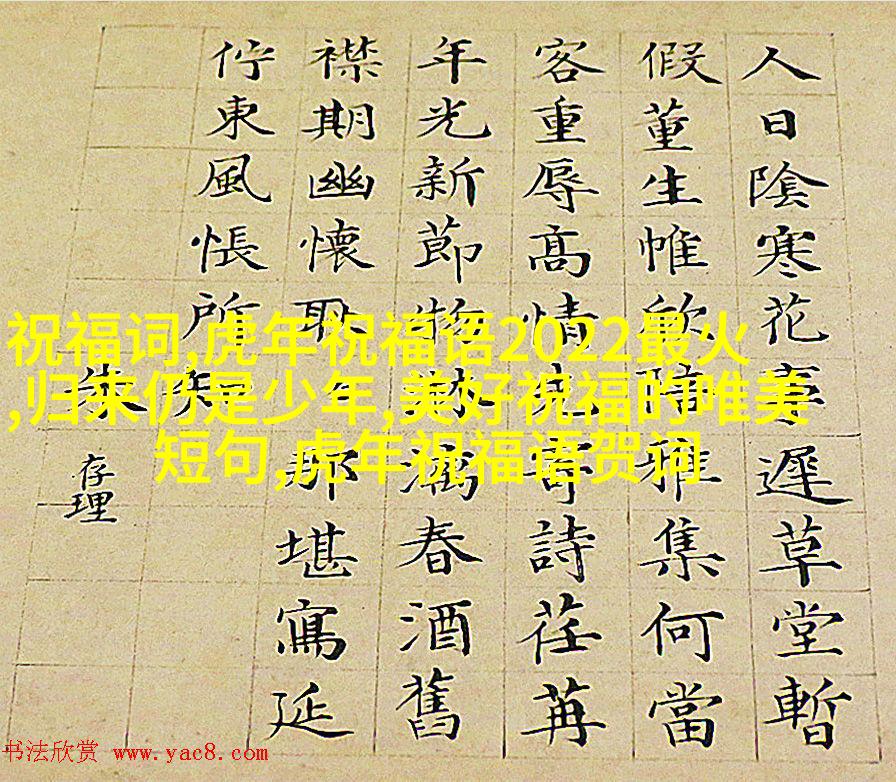 人日陰寒花事遲草堂暫
假董生帷欣陪雅集何當
客重辱高情先寄詩荏苒
年光新節物漓春酒舊
襟期幽懷耿那堪寫延
佇東風悵所知
朱
存理
祝福词,虎年祝福语2022最火
,归来仍是少年,美好祝福的唯美
短句,虎年祝福语贺词
书法欣赏 www.yac8.com